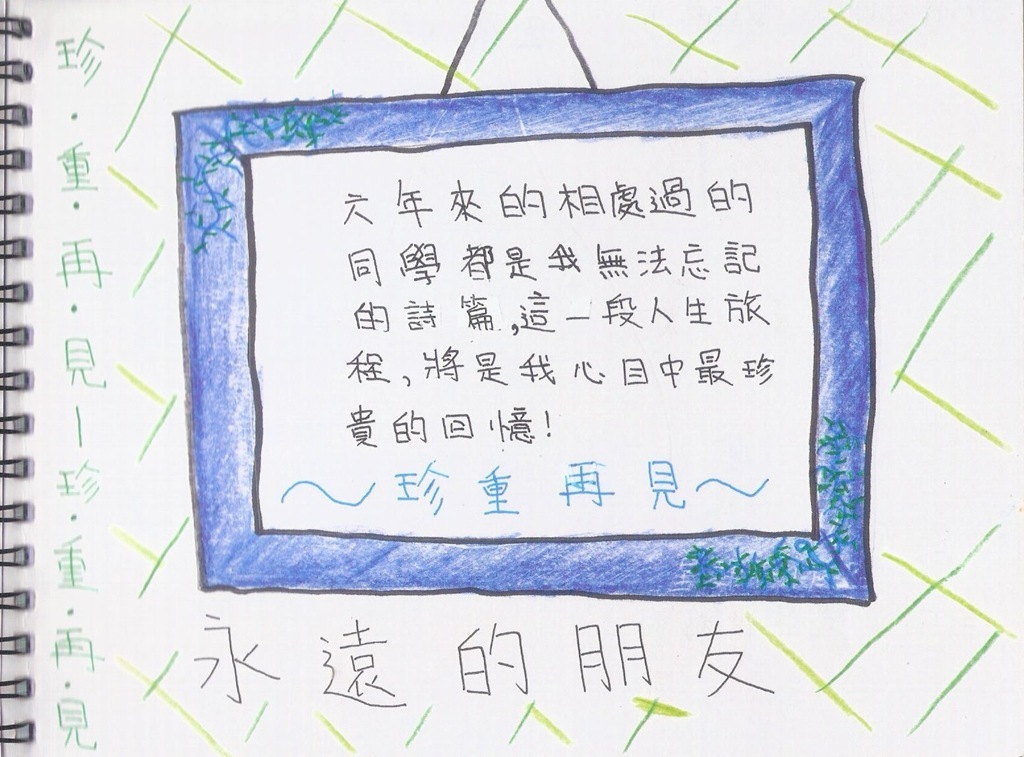 珍·重·再·見—珍·重·再·見
六年來的相處過的
同學都是我無法忘記
的詩篇,這一段人生旅
程,將是我心目中最珍
貴的回憶!
～珍重再見～
永遠的朋友